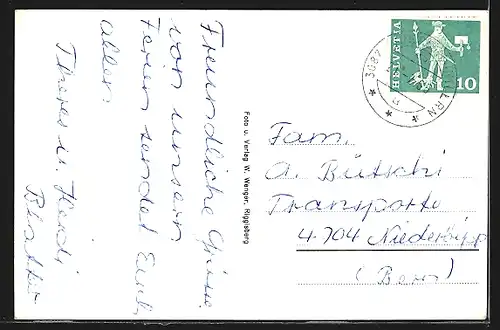 Freundliche Grüsse
von unsern
Ferien sendet Euch
allen:
Theres u. Heidi
Foto u. Verlag W. Wenger, Riggisberg
HELVETIA
10
3087
Fam.
A. Bütschi
Transporte
4704 Niederbipp
(Bern)